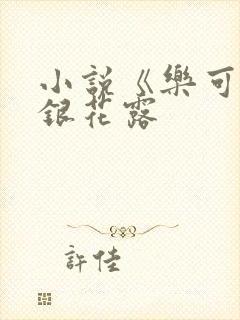 小説《樂可
銀花露
許佳